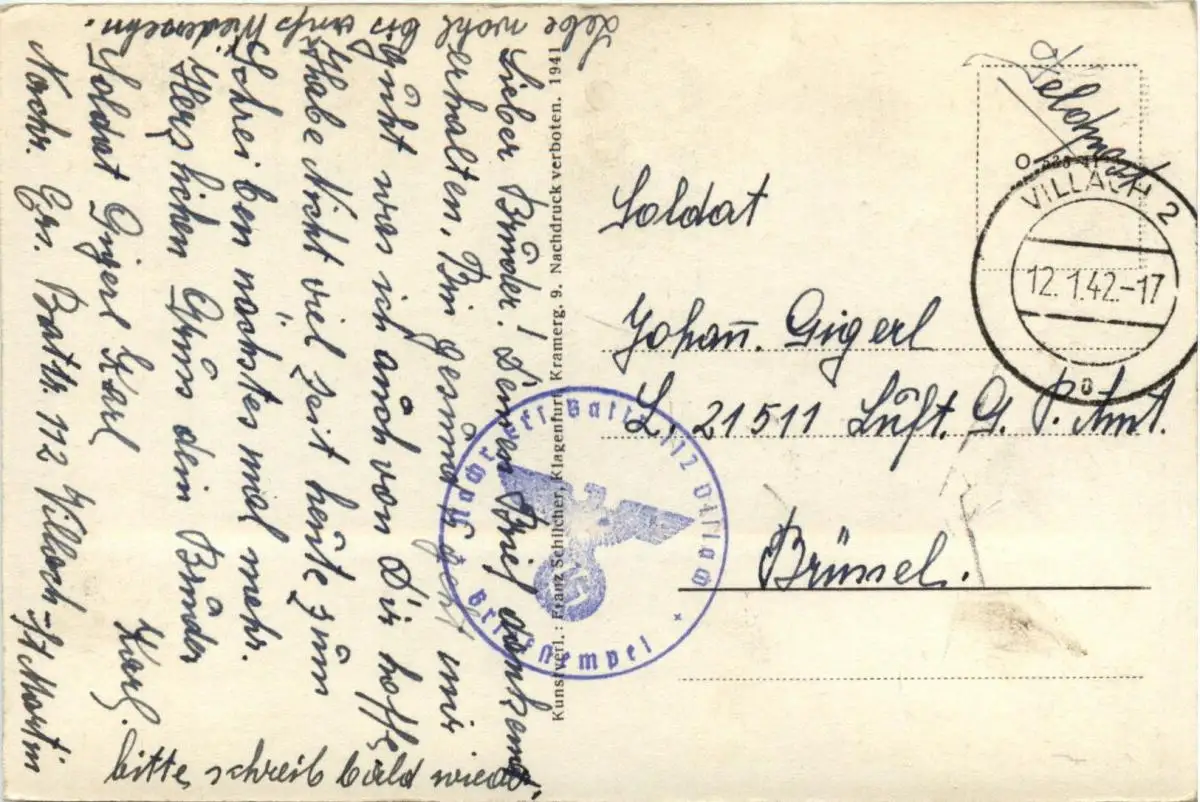 Lieber Bruder! Deinen Brief dankend
erhalten. Bin gesund es geht mir
gut was ich auch von Dir hoffe
Habe Nicht viel zeit heute zum
Schreiben nächstes mal mehr.
Herzlichen Gruss dein Bruder
Karl.
Soldat Gigerl Karl
Nachr. Ers. Battr. 112 Villach-St. Martin
Lebe wohl bis aufs Wiedersehn.
bitte schreib bald wieder.
Kunstverl.: Franz Schilcher, Klagenfurt, Kramerg. 9. Nachdruck verboten. 1941
Feldpost
VILLACH 2
12.1.42.-17
Soldat
Johann. Gigerl
L. 21511 Luft. G. P. Amt.
Brüssel.
Briefstempel